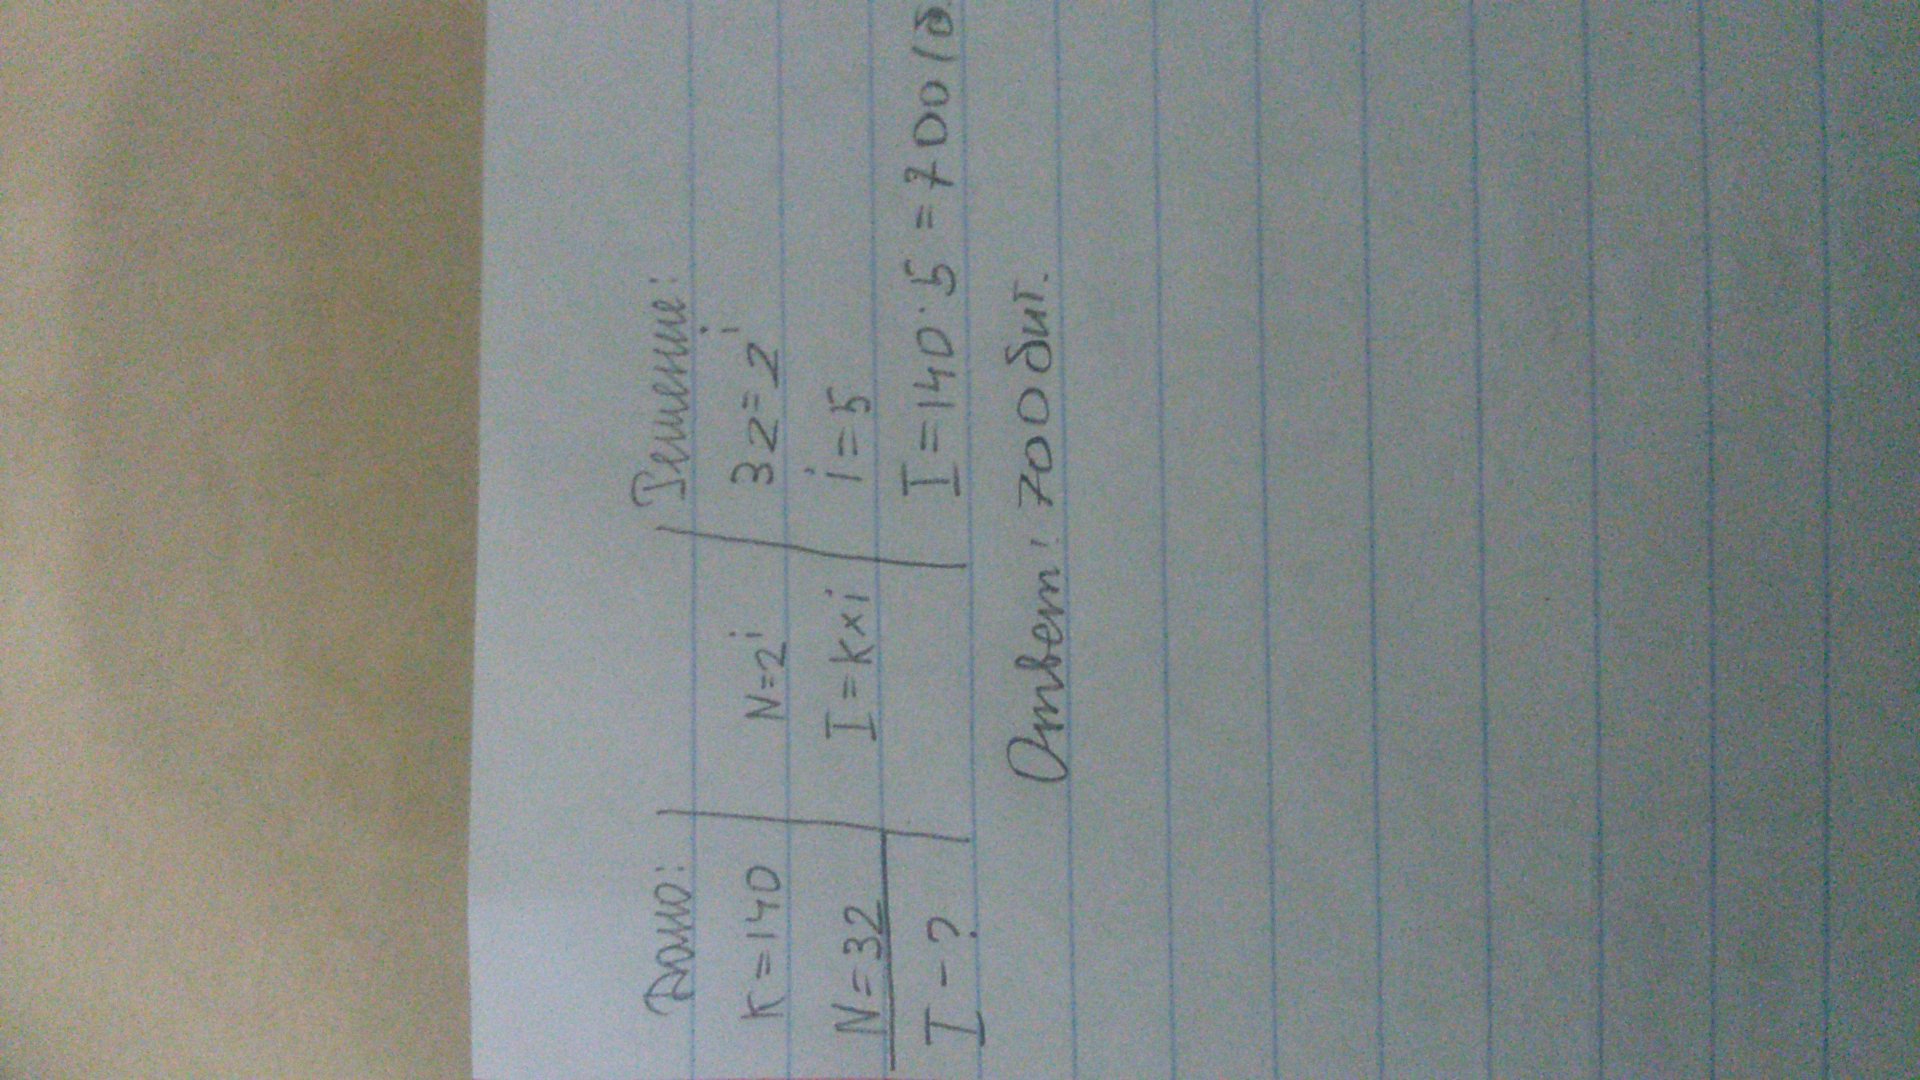 Дано:
K=140
N=32
I-?
N=2ⁱ
I=k×i
Решение:
32=2ⁱ
i=5
I=140·5=700(б
Ответ: 700 бит.